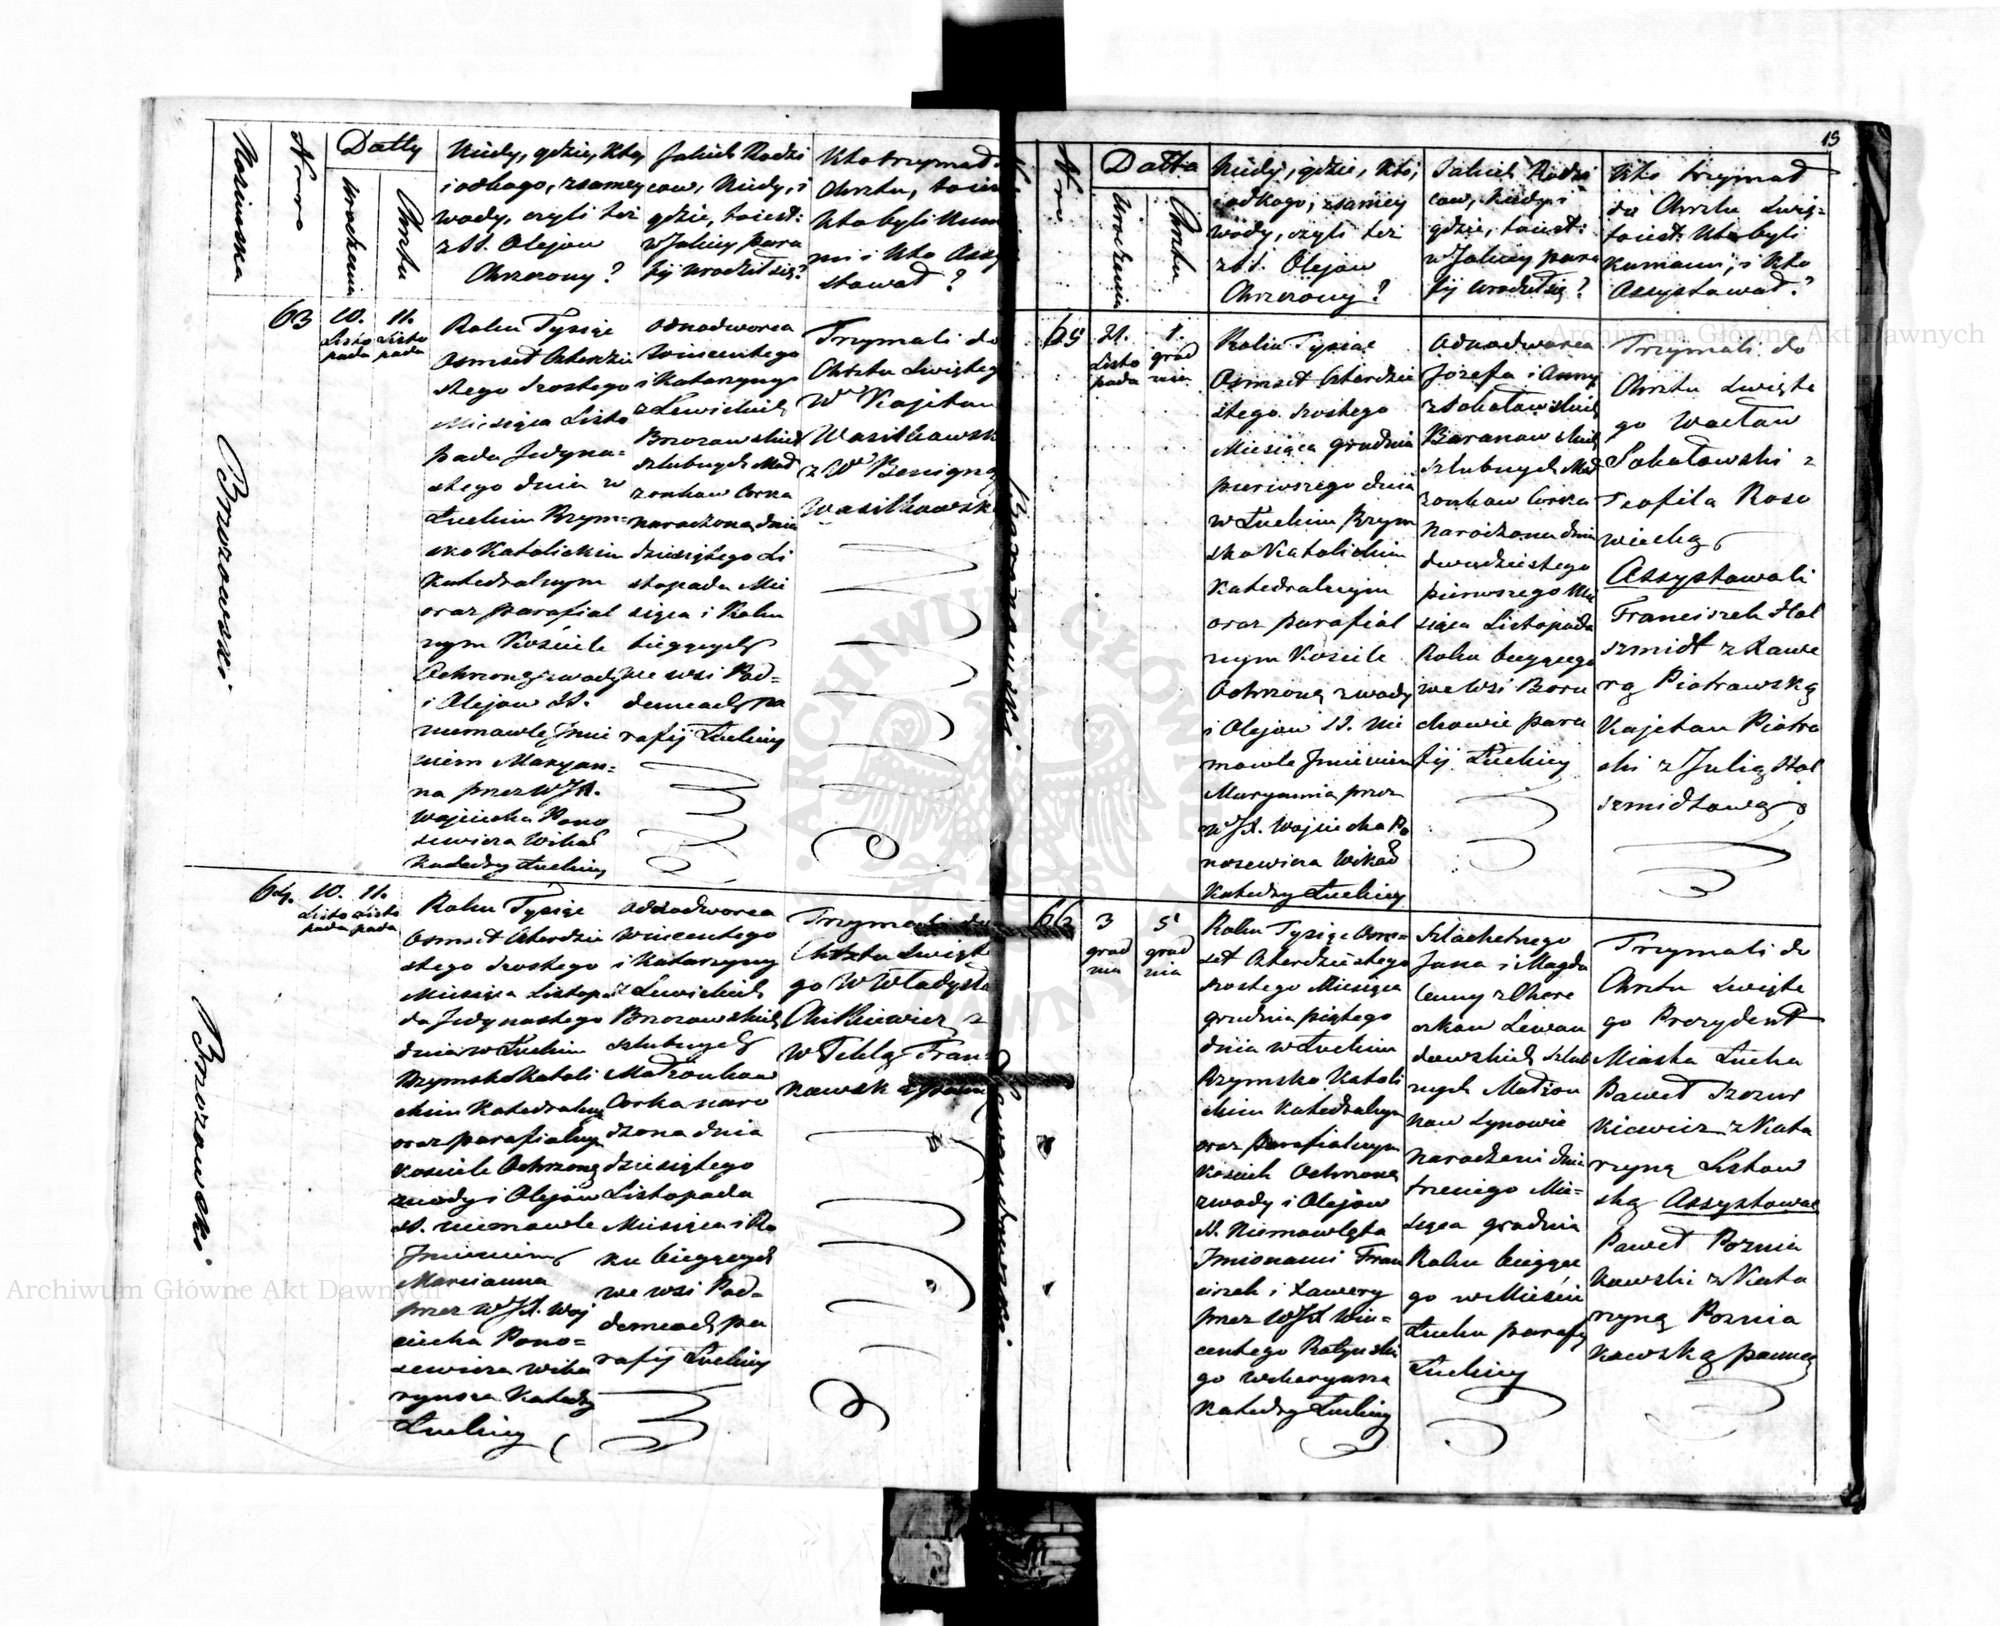 Nazwiska
Nrro
Datty
Urodzenia
Chrztu
Kiedy, gdzie, kto,
i od kogo, z samey
wody, czyli też
z SS. Olejow
Chrzczony?
Jakich Rodzi
cow, Kiedy, i
gdzie, to iest:
w Jakiey para
fij urodził się?
Kto trzymał
Chrztu, to ies
Kto byli Kum
mi i Kto Assy
stował?
63
10.
Listo
pada
11.
Listo
pada
Brzozowski
Roku Tysiąc
Osmset Czterdzie
stego szostego
Miesiąca Listo
pada Jedyna=
stego dnia w
Łuckim Rzym=
sko Katolickim
Katedralnym
oraz parafial
nym Kościele
Ochrzczoną z wody
i Olejow SS.
niemowlę Jmie
niem Maryan=
na przez WJX.
Wojciecha Pono
sewicza Wikar
Katedry Łuckiey
Odnodworca
Wincentego
i Katarzyny
z Lewickich
Brzozowskich
szlubnych Mał
zonkow Corka
narodzona dnia
dziesiątego Li
stopada Mie
siąca i Roku
bieżących
we wsi Pod=
demcach pa
rafij Łuckiey
Trzymali do
Chrztu Świętego
W Kajetan
Wasilkowsk
z W Benigną
Wasilkowsk
64.
10.
Listo
pada
11.
Listo
pada
Brzozowski.
Roku Tysiąc
Osmset Czterdzie
stego szostego
Miesiąca Listopa
da Jedynastego
dnia w Łuckim
Rzymsko Katoli
ckim Katedralnym
oraz parafialnym
Kościele Ochrzczoną
z wody i Olejow
SS. niemowle
Jmieniem
Marcianna
przez WJX. Woj
ciecha Pono=
sewicza Wika
ryusza Katedry
Łuckiey
Odnodworca
Wincentego
i Katarzyny
z Lewickich
Brzozowskich
szlubnych
Małzonkow
Corka naro
dzona dnia
dziesiątego
Listopada
Miesiąca i Ro
ku bieżących
we wsi Pod=
demcach pa
rafij Łuckiey
Trzymali do
Chrztu Święte
go W Władysła
z
W Teklą Fran=
15
Nrro
Datta
Urodzenia
Chrztu
Kiedy, gdzie, kto,
i od kogo, z samey
wody, czyli też
z SS. Olejow
Chrzczony?
Jakich Rodzi
cow, Kiedy, i
gdzie, to iest:
w Jakiey para
fij urodził się?
Kto trzymał
do Chrztu Swię=
to iest: Kto byli
Kumami, i Kto
Assystował?
65
21.
Listo
pada
1.
grud
nia
Baranowski
Roku Tysiąc
Osmset Czterdzie
stego szostego
Miesiąca grudnia
pierwszego dnia
w Łuckim Rzym
sko Katolickim
Katedralnym
oraz parafial
nym Kościele
Ochrzczoną z wody
i Olejow SS. nie
mowle Jmieniem
Maryannia przez
WJX. Wojciecha Po
nosewicza Wikar
Katedry Łuckiey
Odnodworca
Jozefa i Anny
z Sokołowskich
Baranowskich
szlubnych Mał
zonkow Corka
Narodzona dnia
dwudziestego
pierwszego Mie
siąca Listopada
Roku bieżącego
we Wsi Boru
chowie para
fij Łuckiey
Trzymali do
Chrztu Święte
go Wacław
Sokołowski z
Teofila Roso
wiecką
Assystowali
Franciszek Hol
szmidt z Xawe
rą Piotrowską
Kajetan Piotro
ski z Julią Hol
szmidtową
66
3
grud
nia
5
grud
nia
Lewandowski.
Roku Tysiąc Osm=
set Czterdziestego
szostego Miesiąca
grudnia piątego
dnia w Łuckim
Rzymsko Katoli
ckim Katedralnym
oraz Parafialnym
Kościele Ochrzczono
z wody i Olejow
SS. Niemowlęta
Jmionami Fran
ciszek i Xawery
przez WJX Win=
centego Ratyński
go Wikaryusza
Katedry Łuckiey
Szlachetnego
Jana i Magda
leny z
Lewan
dowskich szlub
nych Małzon
kow Synowie
Narodzeni dnia
trzeciego Mie=
siąca grudnia
Roku bieżące
go w Mieście
Łucku parafij
Łuckiey
Trzymali do
Chrztu Święte
go Prezydent
Miasta Łucka
Paweł Szczur
kiewicz z Kata
rzyną Listow
ską Assystował
Paweł Poznia
kowski z Kata
rzyną Poznia
kowską panną
Archiwum Główne Akt Dawnych
Archiwum Główne Akt Dawnych
ARCHIWUM GŁÓWNE AKT DAWNYCH